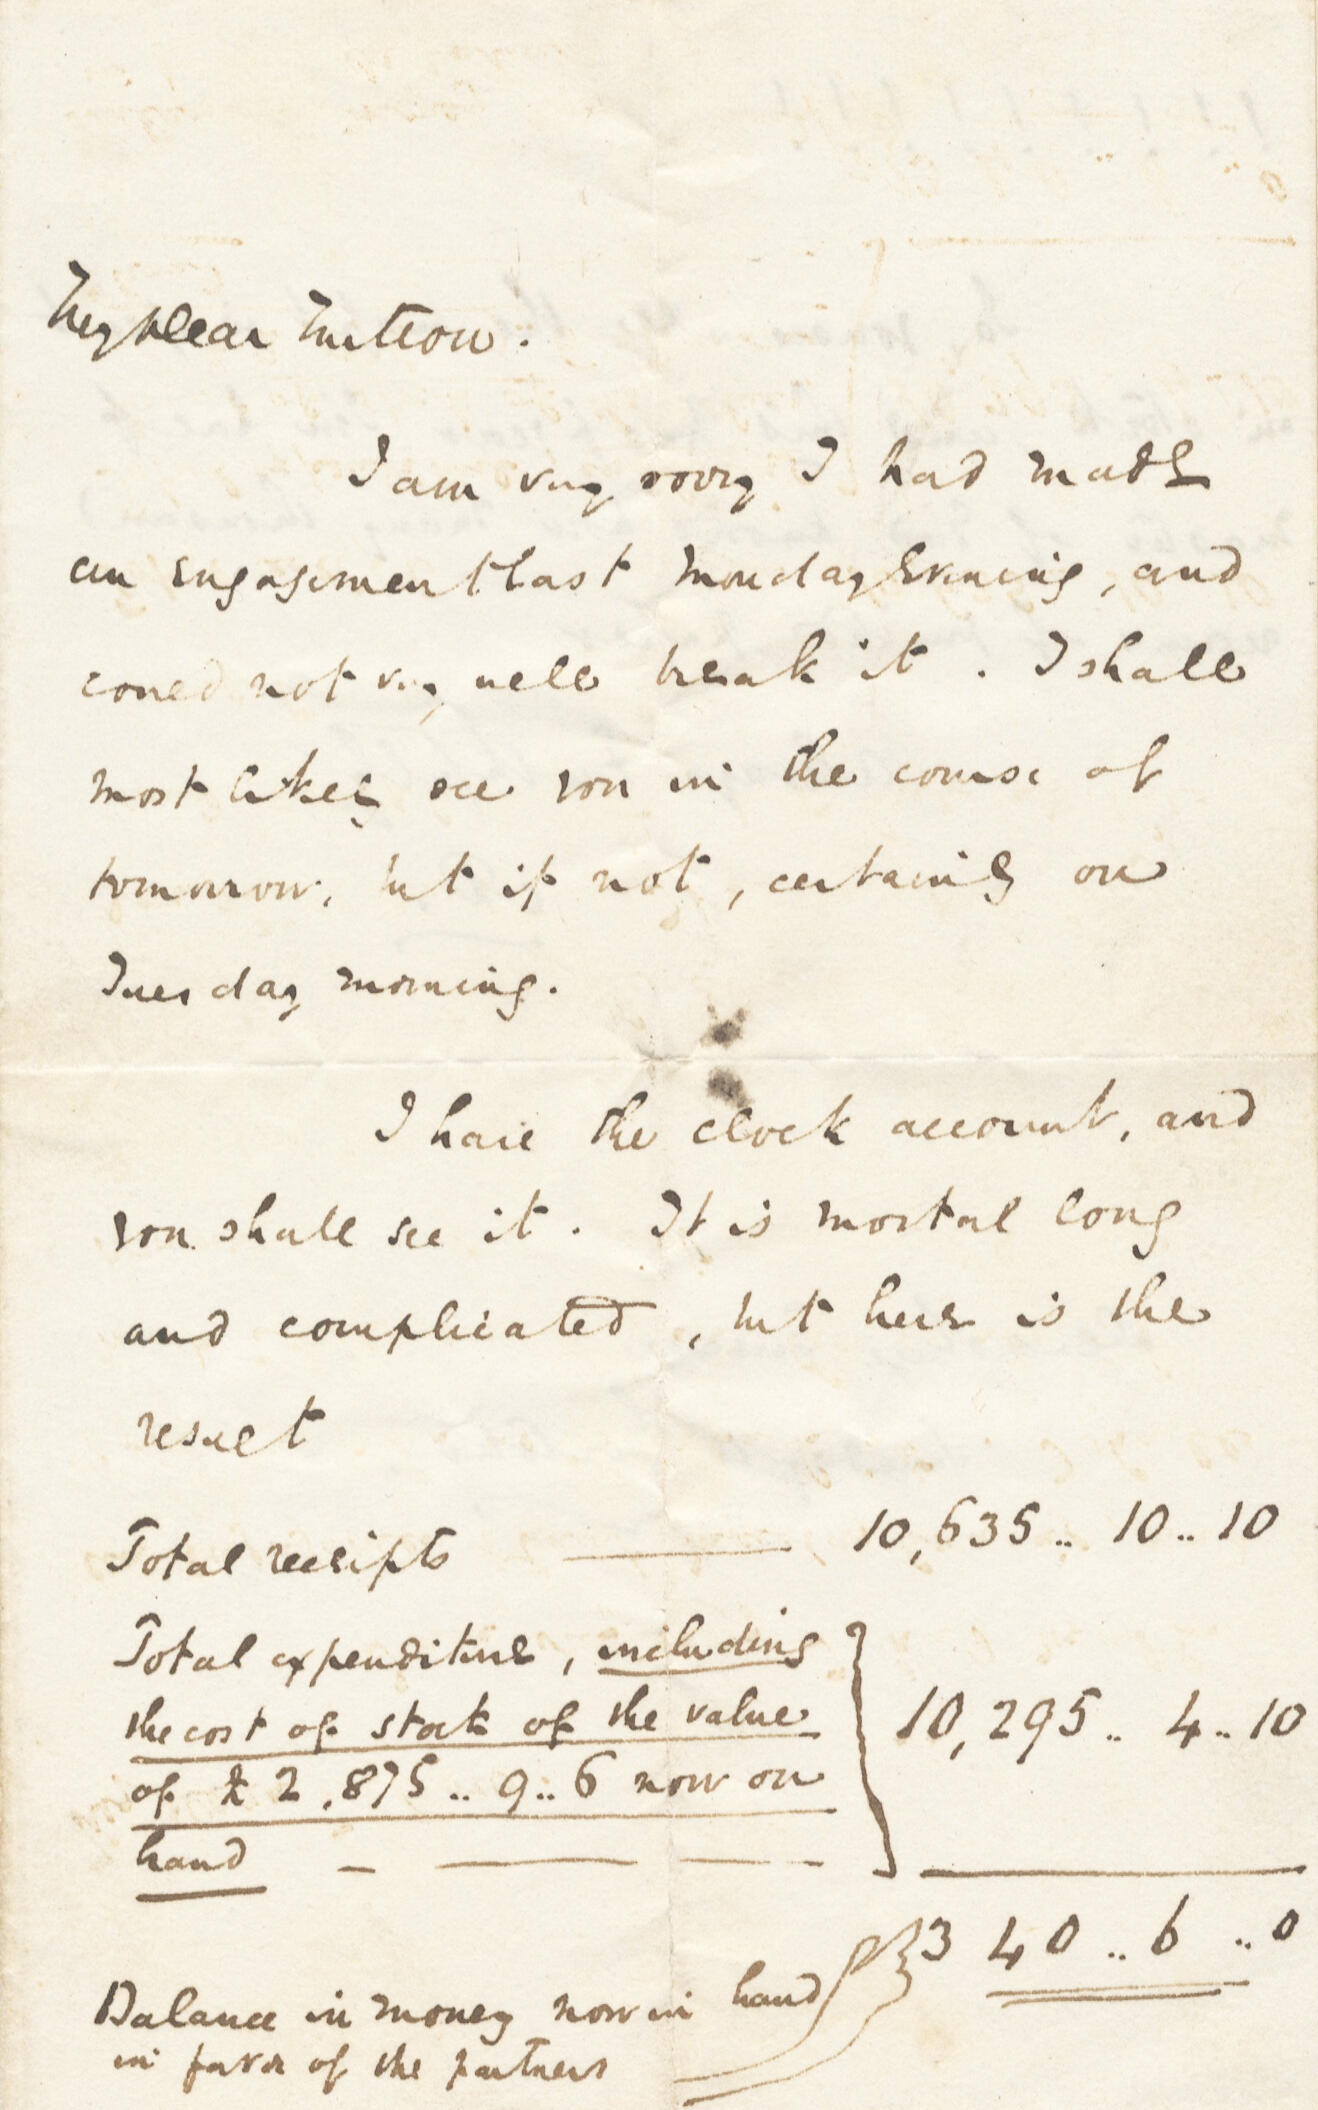 My dear Mitton.
I am very sorry I had made
an engagement last Monday Evening, and
could not very well break it. I shall
most likely see you in the course of
tomorrow, but if not, certainly on
Tuesday morning.
I have the clock account, and
you shall see it. It is mortal long
and complicated, but here is the
result
Total receipts — 10,635.. 10.. 10
Total expenditure, including
the cost of stock of the value
of £2,875.. 9.. 6 now on
hand — — — 10,295.. 4.. 10
340.. 6.. 0
Balance in money now in hand
in favor of the partners